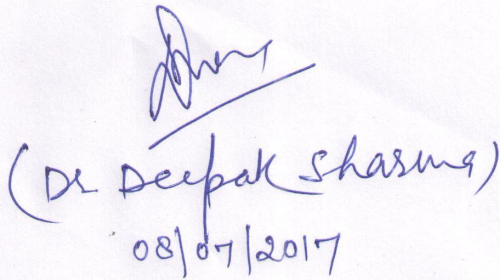 (Dr Deepak Sharma)
08/07/2017